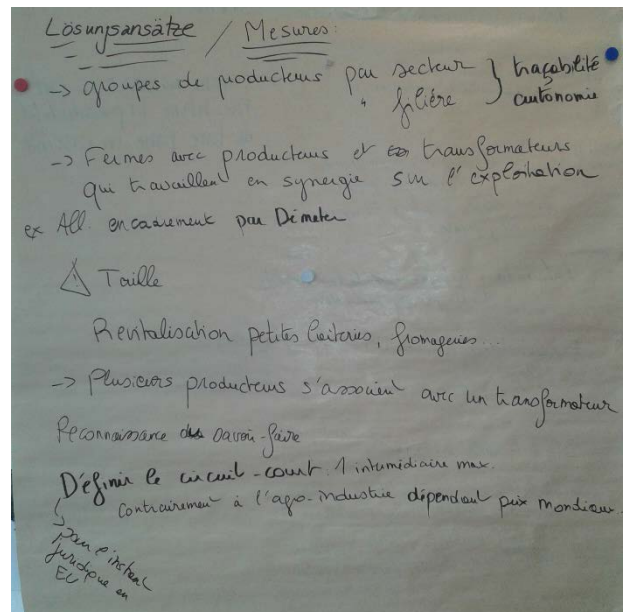 Lösungsansätze / Mesures:
-> groupes de producteurs par secteur } traçabilité
" filière } autonomie
-> Fermes avec producteurs et transformateurs
qui travaillent en synergie sur l'exploitation
ex All. encadrement par Démeter
⚠ Taille
Revitalisation petites laiteries, fromageries...
-> Plusieurs producteurs s'associent avec un transformateur
Reconnaissance du savoir-faire
Définir le circuit-court. 1 intermédiaire max.
contrairement à l'agro-industrie dépendant prix mondiaux.
-> pour l'instant
juridique en
EU